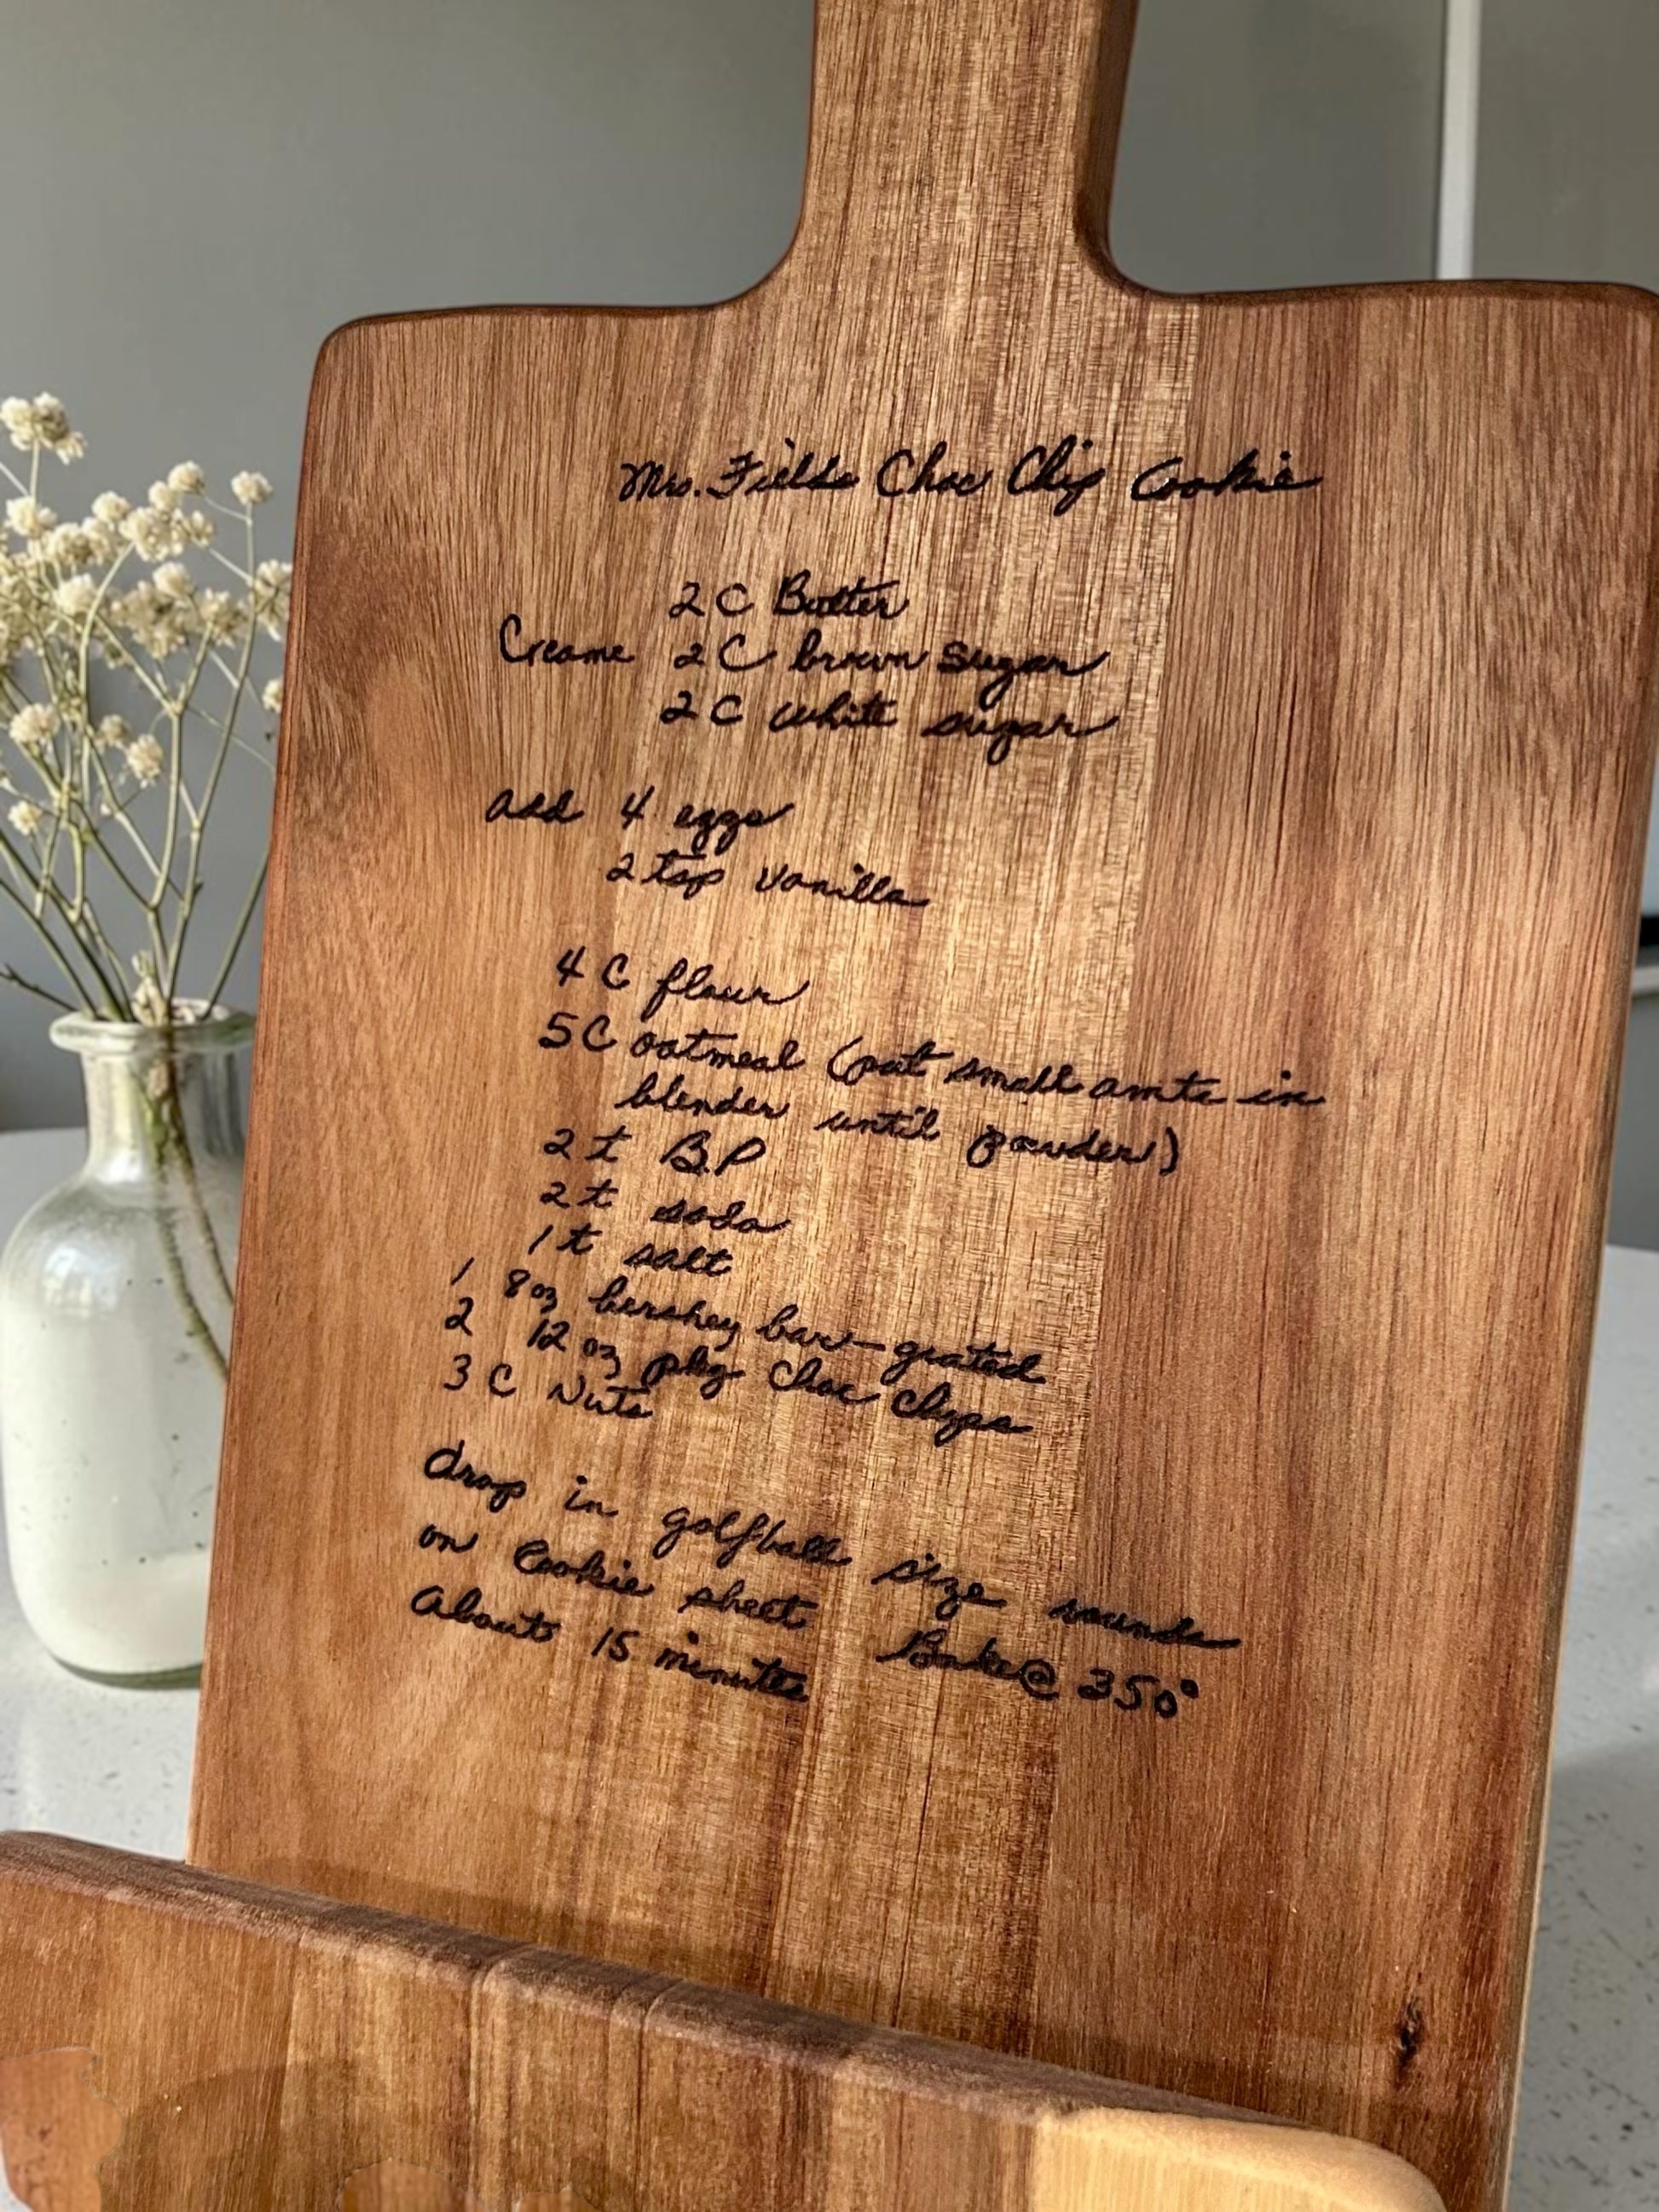 Mrs. Fields Choc Chip Cookie
2 C Butter
Creame 2 C brown sugar
2 C white sugar
add 4 eggs
2 tsp vanilla
4 C flour
5 C oatmeal (put small amts in
blender until powder)
2 t B.P
2 t soda
1 t salt
1 8 oz hershey bar - grated
2 12 oz pkg Choc Chips
3 C Nuts
drop in golfball size rounds
on Cookie sheet Bake @ 350°
About 15 minutes